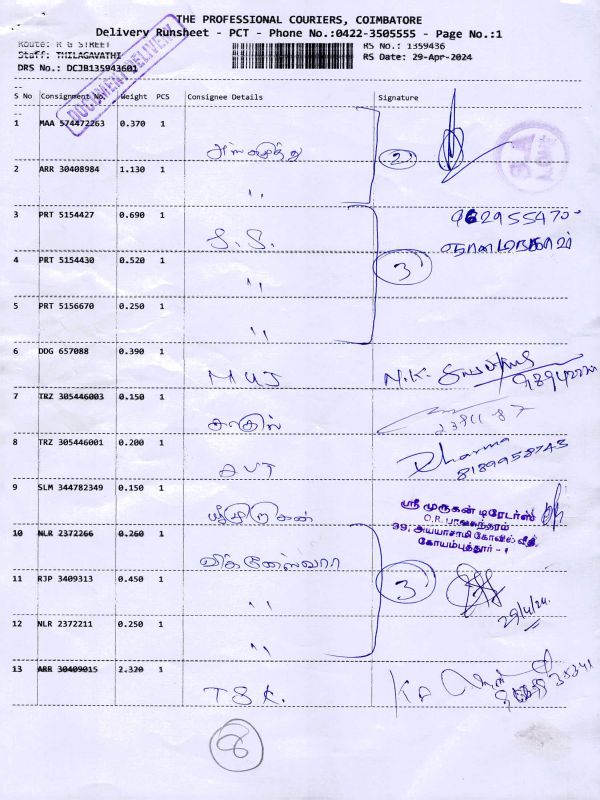 THE PROFESSIONAL COURIERS, COIMBATORE
Delivery Runsheet - PCT - Phone No.:0422-3505555 - Page No.:1
Route: R G STREET
RS No.: 1359436
Staff: THILAGAVATHI
RS Date: 29-Apr-2024
DRS No.: DCJB135943601
DOCUMENT DELIVERY
S No Consignment No. Weight PCS Consignee Details Signature
1 MAA 574472263 0.370 1
2
2 ARR 30408984 1.130 1 "
3 PRT 5154427 0.690 1 S.S.
4 PRT 5154430 0.520 1 "
3
5 PRT 5156670 0.250 1 "
6 DDG 657088 0.390 1 MUJ N.K.
7 TRZ 305446003 0.150 1
8 TRZ 305446001 0.200 1 AVT Dharma
8189958743
9 SLM 344782349 0.150 1 ஸ்ரீமுருகன்
ஸ்ரீ முருகன் டிரேடர்ஸ்
O.R. பாலசுந்தரம்
39, அய்யாசாமி கோவில் வீதி,
கோயம்புத்தூர் - 1
10 NLR 2372266 0.260 1 விக்னேஸ்வரா
11 RJP 3409313 0.450 1 " 3
29/4/24.
12 NLR 2372211 0.250 1 "
13 ARR 30409015 2.320 1 TSK.
8